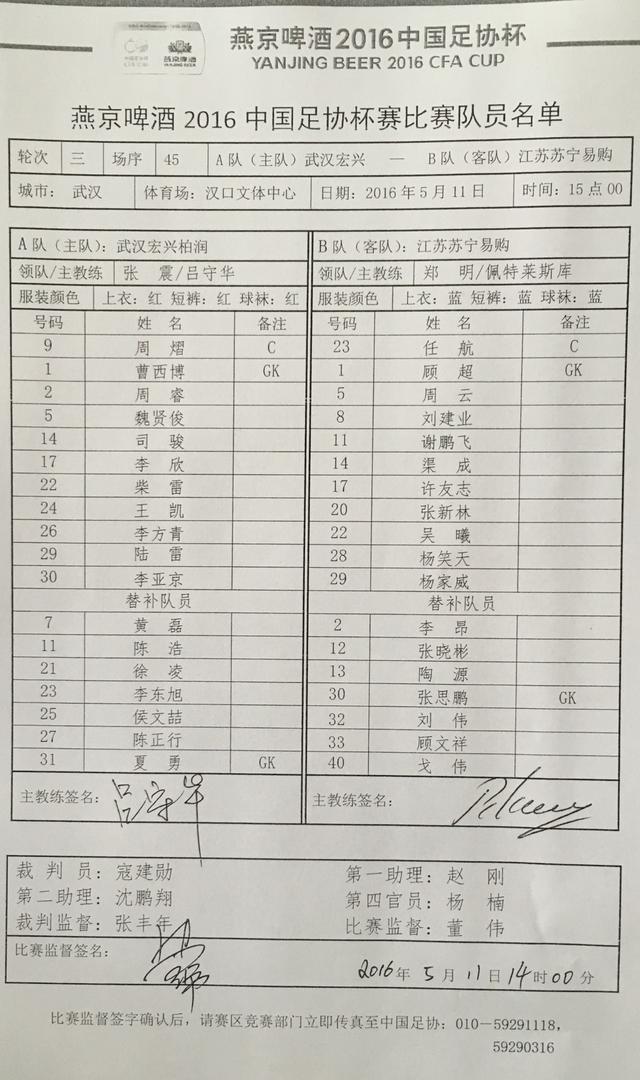 燕京啤酒2016中国足协杯
YANJING BEER 2016 CFA CUP
燕京啤酒 2016 中国足协杯赛比赛队员名单
轮次 三 场序 45 A队（主队）武汉宏兴 — B队（客队）江苏苏宁易购
城市： 武汉 体育场：汉口文体中心 日期：2016年5月11日 时间：15点00
A队（主队）：武汉宏兴柏润 B队（客队）：江苏苏宁易购
领队/主教练 张 震/吕守华 领队/主教练 郑 明/佩特莱斯库
服装颜色 上衣：红 短裤：红 球袜：红 服装颜色 上衣：蓝 短裤：蓝 球袜：蓝
号码 姓 名 备注 号码 姓 名 备注
9 周 熠 C 23 任 航 C
1 曹西博 GK 1 顾 超 GK
2 周 睿 5 周 云
5 魏贤俊 8 刘建业
14 司 骏 11 谢鹏飞
17 李 欣 14 渠 成
22 柴 雷 17 许友志
24 王 凯 20 张新林
26 李方青 22 吴 曦
29 陆 雷 28 杨笑天
30 李亚京 29 杨家威
替补队员 替补队员
7 黄 磊 2 李 昂
11 陈 浩 12 张晓彬
21 徐 凌 13 陶 源
23 李东旭 30 张思鹏 GK
25 侯文喆 32 刘 伟
27 陈正行 33 顾文祥
31 夏 勇 GK 40 戈 伟
主教练签名：吕守华 主教练签名：
裁 判 员：寇建勋 第一助理：赵 刚
第二助理：沈鹏翔 第四官员：杨 楠
裁判监督：张丰年 比赛监督：董 伟
比赛监督签名： 2016年 5月 11日 14时00分
比赛监督签字确认后，请赛区竞赛部门立即传真至中国足协：010－59291118，
59290316